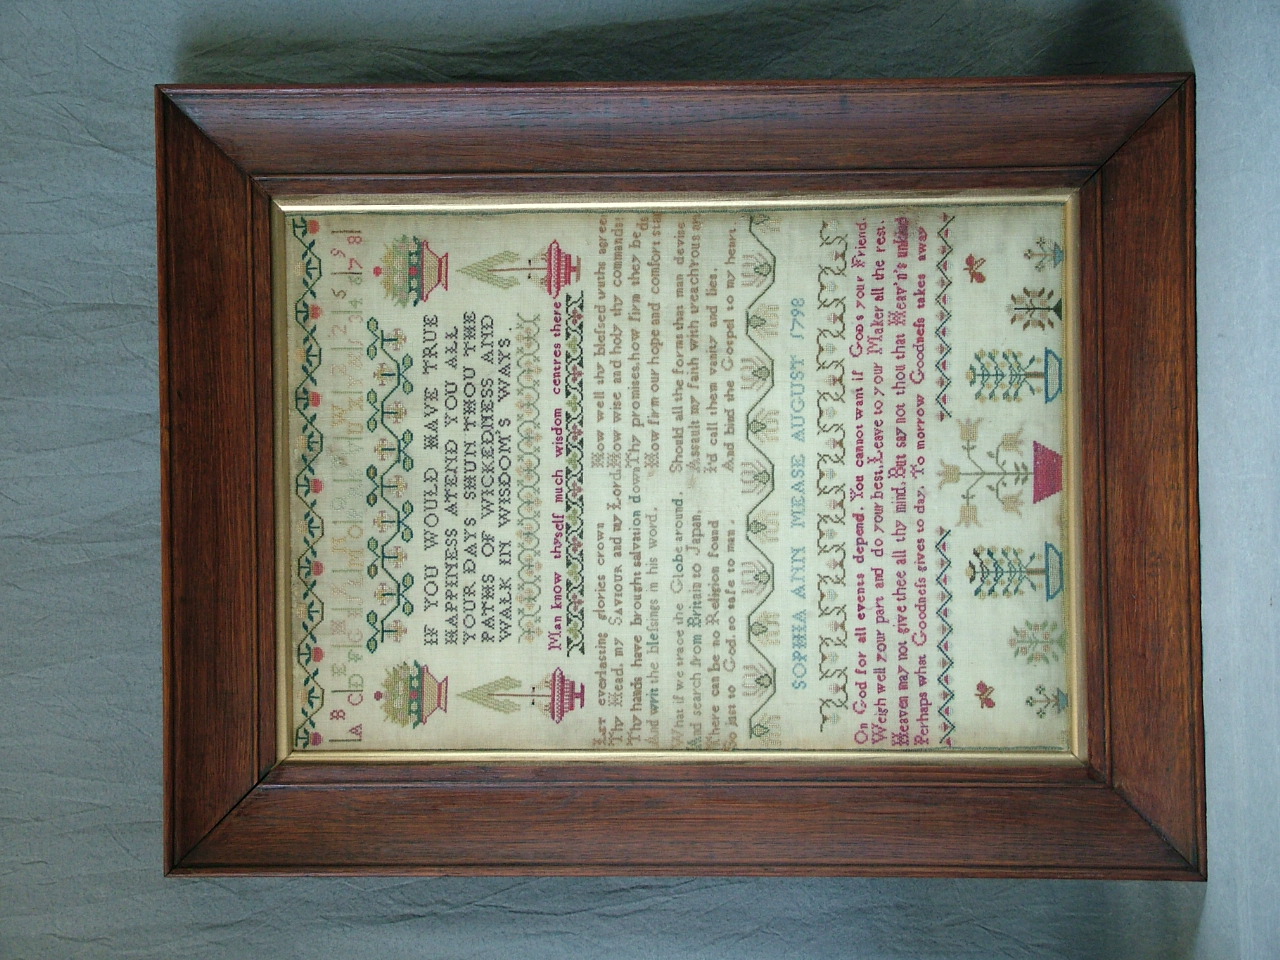 A B C D E F G H I K L M N O
IF YOU WOULD HAVE TRUE
HAPPINESS ATEND YOU ALL
YOUR DAYS SHUN THOU THE
PATHS OF WICKEDNESS AND
WALK IN WISDOM'S WAYS
Man know thyself much wisdom centres there
Let everlasting glories crown
Thy Head, my Saviour and my Lord,
Thy hands have brought salvation down
And writ the blefsings in his word.
What if we trace the Globe around,
And search from Britain to Japan,
There can be no Religion found
So just to God, so safe to man.
How well thy blefsed truths agree
How wise and holy thy commands!
Thy promises, how firm they be
How firm our hope and comfort
Should all the forms that man devise
Assault my faith with treachrous
I'd call them vanity and lies,
And bind the Gospel to my heart.
SOPHIA ANN MEASE AUGUST 1798
On God for all events depend, You cannot want if God's your Friend.
Weigh well your part and do your best, Leave to your Maker all the rest.
Heaven may not give thee all thy mind, But say not thou that Heav'n's unkind
Perhaps what Goodnefs gives to day, To morrow Goodnefs takes away